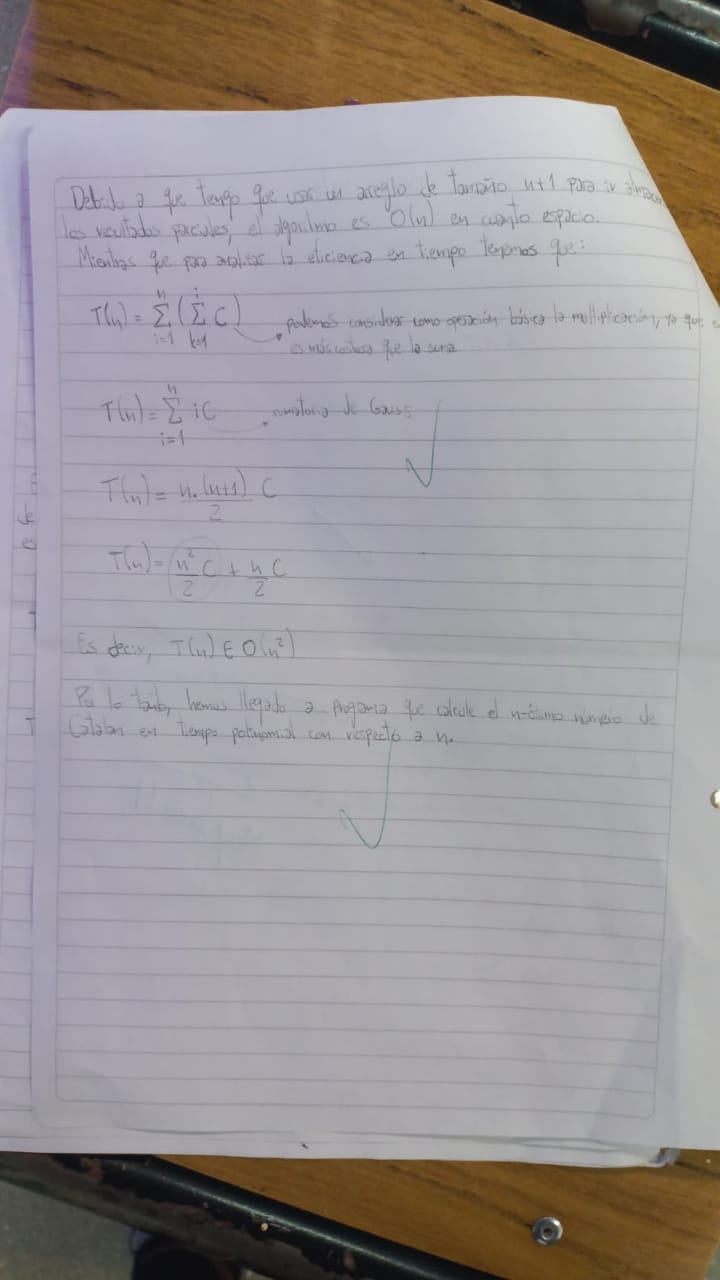 Debido a que tengo que usar un arreglo de tamaño n+1 para ir
los resultados parciales, el algoritmo es O(n) en cuanto espacio.
Mientras que para analizar la eficiencia en tiempo tenemos que:
T(n) = Σ_{i=1}^{n} (Σ_{k=1}^{i} C) podemos considerar como operación básica la multiplicación, ya que
es más costosa que la suma.
T(n) = Σ_{i=1}^{n} iC sumatoria de Gauss
T(n) = n.(n+1)/2 C
T(n) = n²/2 C + n/2 C
Es decir, T(n) ∈ O(n²)
Por lo tanto, hemos llegado a programa que calcule el n-ésimo número de
Catalan en tiempo polinomial con respecto a n.